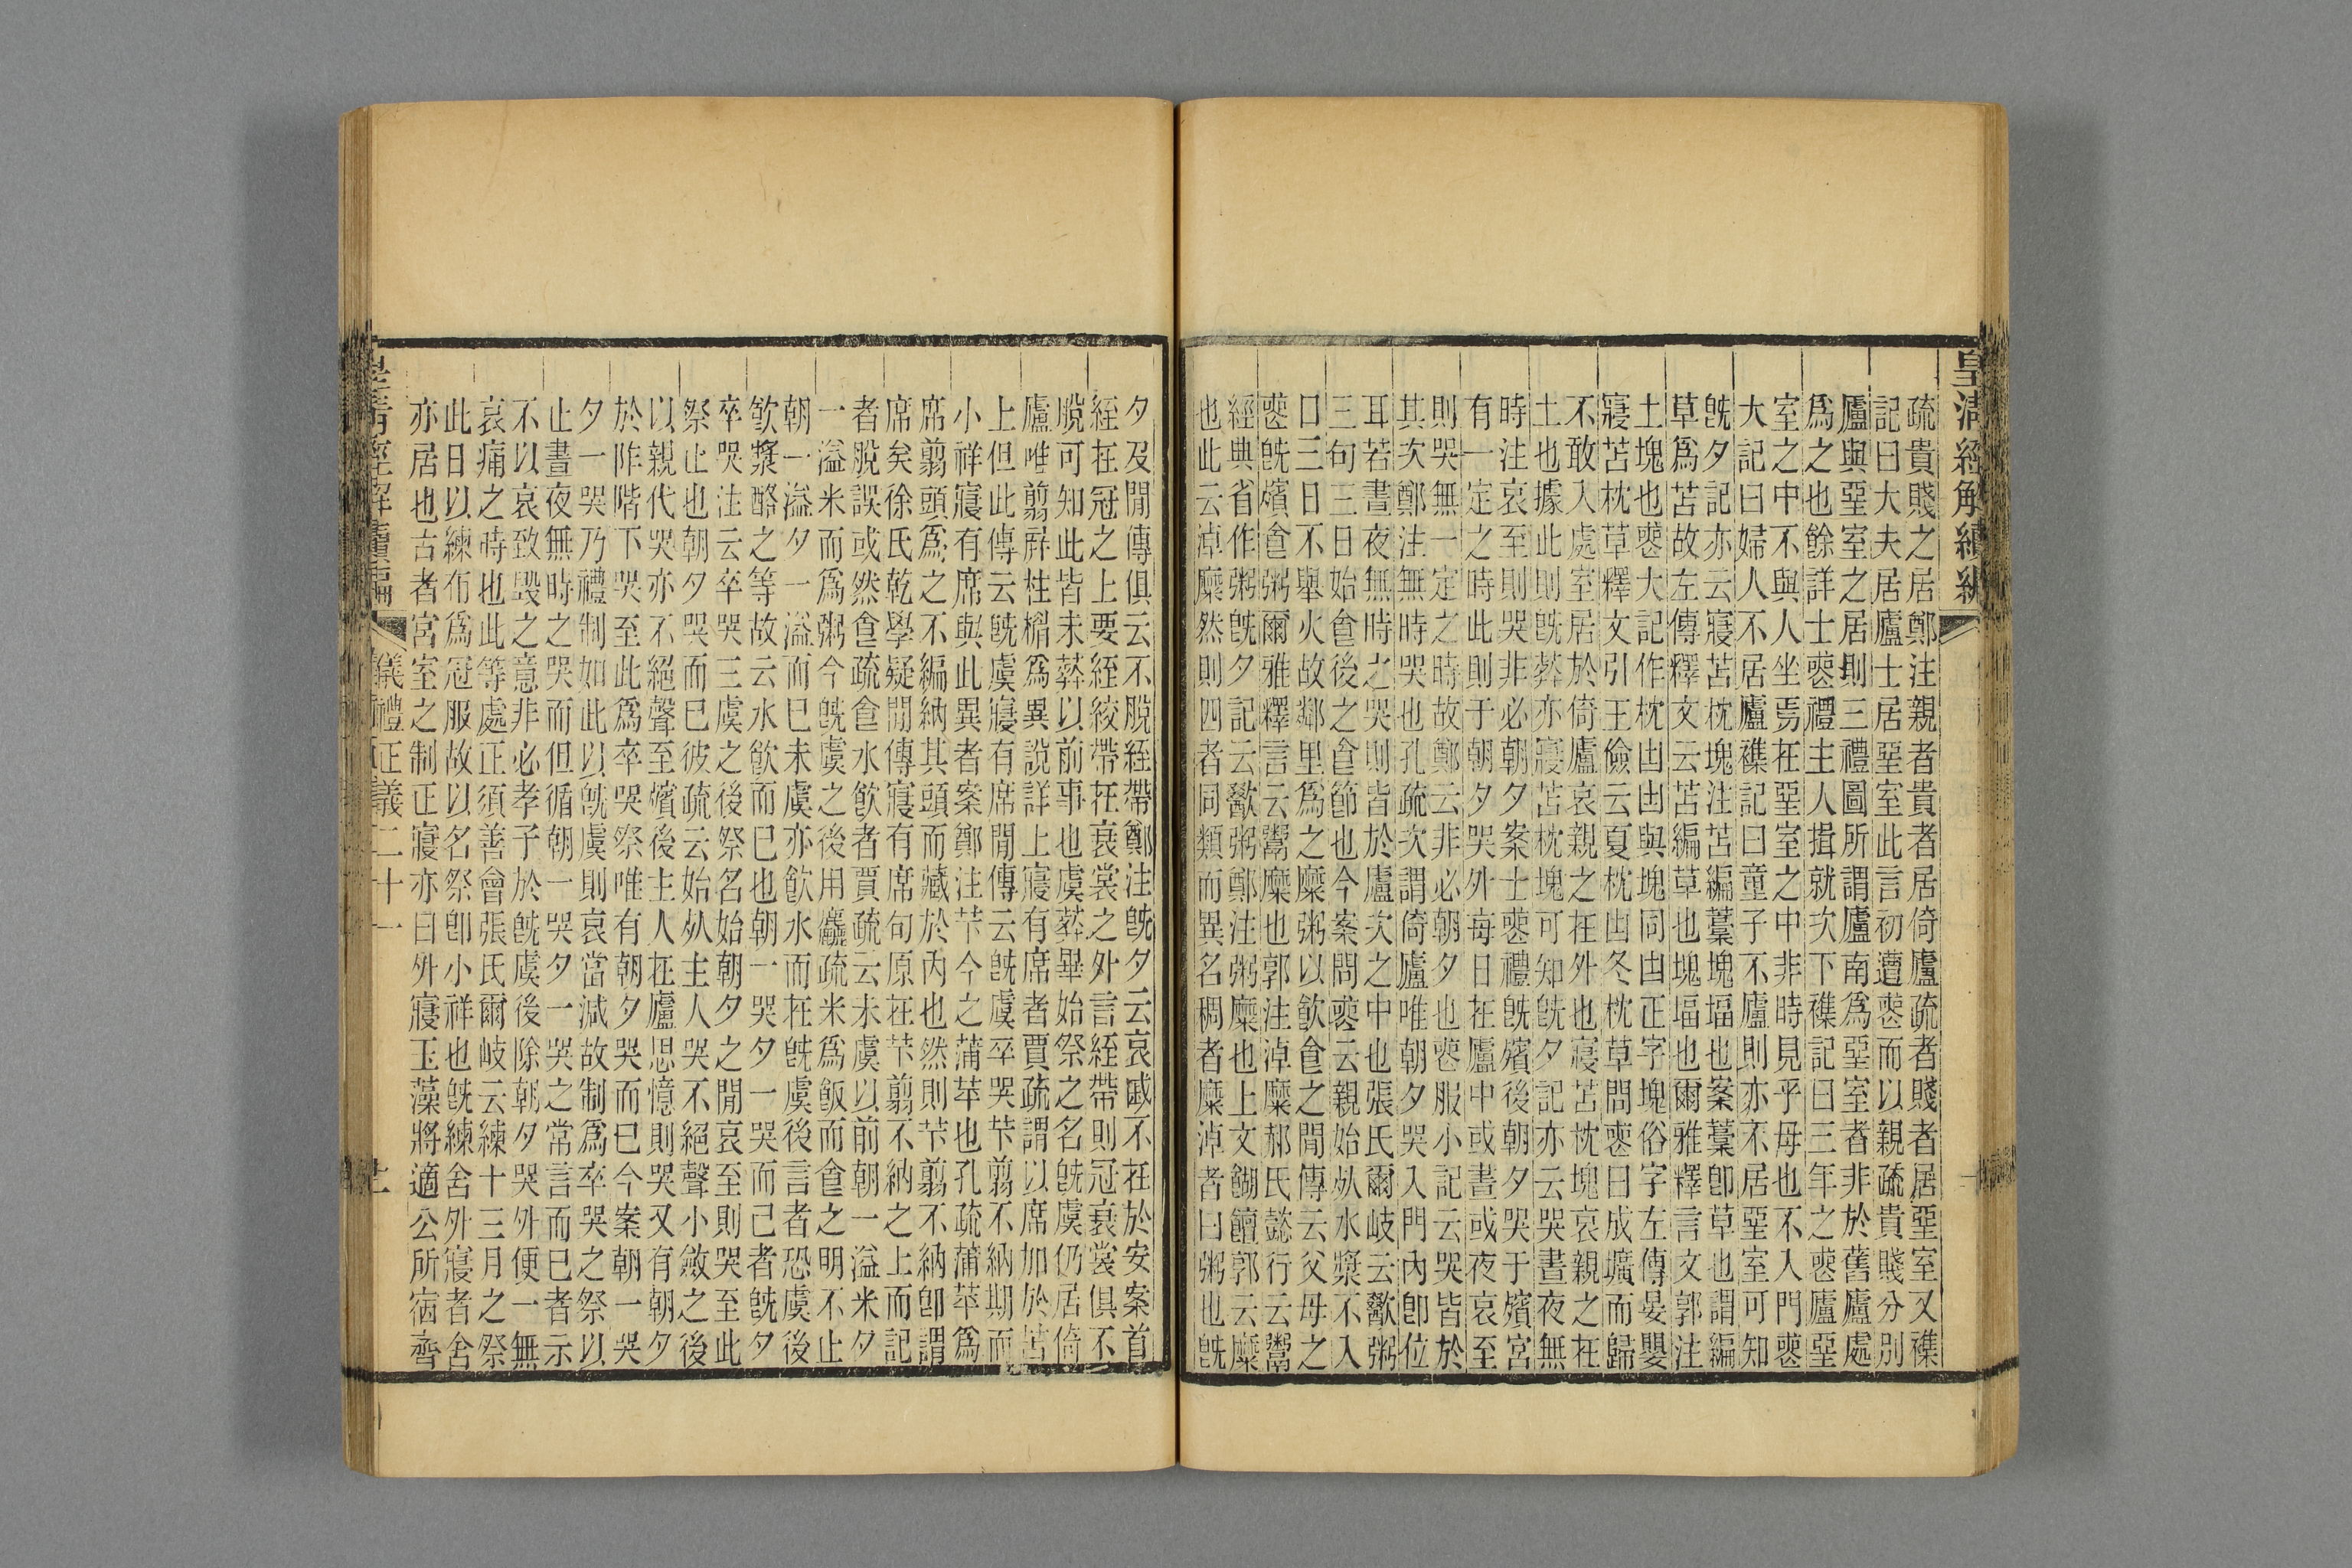 皇清經解續編
疏貴賤之居鄭注親者貴者居倚廬疏者賤者居堊室又襍
記曰大夫居廬士居堊室此言初遭喪而以親疏貴賤分別
廬與堊室之居則三禮圖所謂廬南爲堊室者非於舊廬處
爲之也餘詳士喪禮主人揖就次下襍記曰三年之喪廬堊
室之中不與人坐焉在堊室之中非時見乎母也不入門喪
大記曰婦人不居廬襍記曰童子不廬則亦不居堊室可知
旣夕記亦云寢苫枕塊注苫編藁塊堛也案藁卽草也謂編
草爲苫故左傳釋文云苫編草也塊堛也爾雅釋言文郭注
土塊也喪大記作枕凷凷與塊同凷正字塊俗字左傳晏嬰
寢苫枕草釋文引王儉云夏枕凷冬枕草問喪曰成壙而歸
不敢入處室居於倚廬哀親之在外也寢苫枕塊哀親之在
土也據此則旣葬亦寢苫枕塊可知旣夕記亦云哭晝夜無
時注哀至則哭非必朝夕案士喪禮旣殯後朝夕哭于殯宮
有一定之時此則于朝夕哭外每日在廬中或晝或夜哀至
則哭無一定之時故鄭云非必朝夕也喪服小記云哭皆於
其次鄭注無時哭也孔疏次謂倚廬唯朝夕哭入門內卽位
耳若晝夜無時之哭則皆於廬次之中也張氏爾岐云歠粥
三句三日始食後之食節也今案問喪云親始死水漿不入
口三日不舉火故鄰里爲之糜粥以飮食之閒傳云父母之
喪旣殯食粥爾雅釋言云鬻糜也郭注淖糜郝氏懿行云鬻
經典省作粥旣夕記云歠粥鄭注粥糜也上文餬饘郭云糜
也此云淖糜然則四者同類而異名稠者糜淖者曰粥也旣
夕及閒傳俱云不脫絰帶鄭注旣夕云哀戚不在於安案首
絰在冠之上要絰絞帶在衰裳之外言絰帶則冠衰裳俱不
脫可知此皆未葬以前事也虞葬畢始祭之名旣虞仍居倚
廬唯翦屛柱楣爲異說詳上寢有席者賈疏謂以席加於苫
上但此傳云旣虞寢有席閒傳云旣虞卒哭苄翦不納期而
小祥寢有席與此異者案鄭注苄今之蒲苹也孔疏蒲苹爲
席翦頭爲之不編納其頭而藏於內也然則苄翦不納卽謂
席矣徐氏乾學疑閒傳寢有席句原在苄翦不納之上而記
者脫誤或然食疏食水飮者賈疏云未虞以前朝一溢米夕
一溢米而爲粥今旣虞之後用麤疏米爲飯而食之明不止
朝一溢夕一溢而已未虞亦飮水而在旣虞後言者恐虞後
飮漿酪之等故云水飮而已也朝一哭夕一哭而已者旣夕
卒哭注云卒哭三虞之後祭名始朝夕之閒哀至則哭至此
祭止也朝夕哭而已彼疏云始死主人哭不絕聲小斂之後
以親代哭亦不絕聲至殯後主人在廬思憶則哭又有朝夕
於阼階下哭至此爲卒哭祭唯有朝夕哭而已今案朝一哭
夕一哭乃禮制如此以旣虞則哀當減故制爲卒哭之祭以
止晝夜無時之哭而但循朝一哭夕一哭之常言而已者示
不以哀致毀之意非必孝子於旣虞後除朝夕哭外便一無
哀痛之時也此等處正須善會張氏爾岐云練十三月之祭
此日以練布爲冠服故以名祭卽小祥也旣練舍外寢者舍
亦居也古者宮室之制正寢亦曰外寢玉藻將適公所宿齊
皇清經解續編
儀禮正義二十一